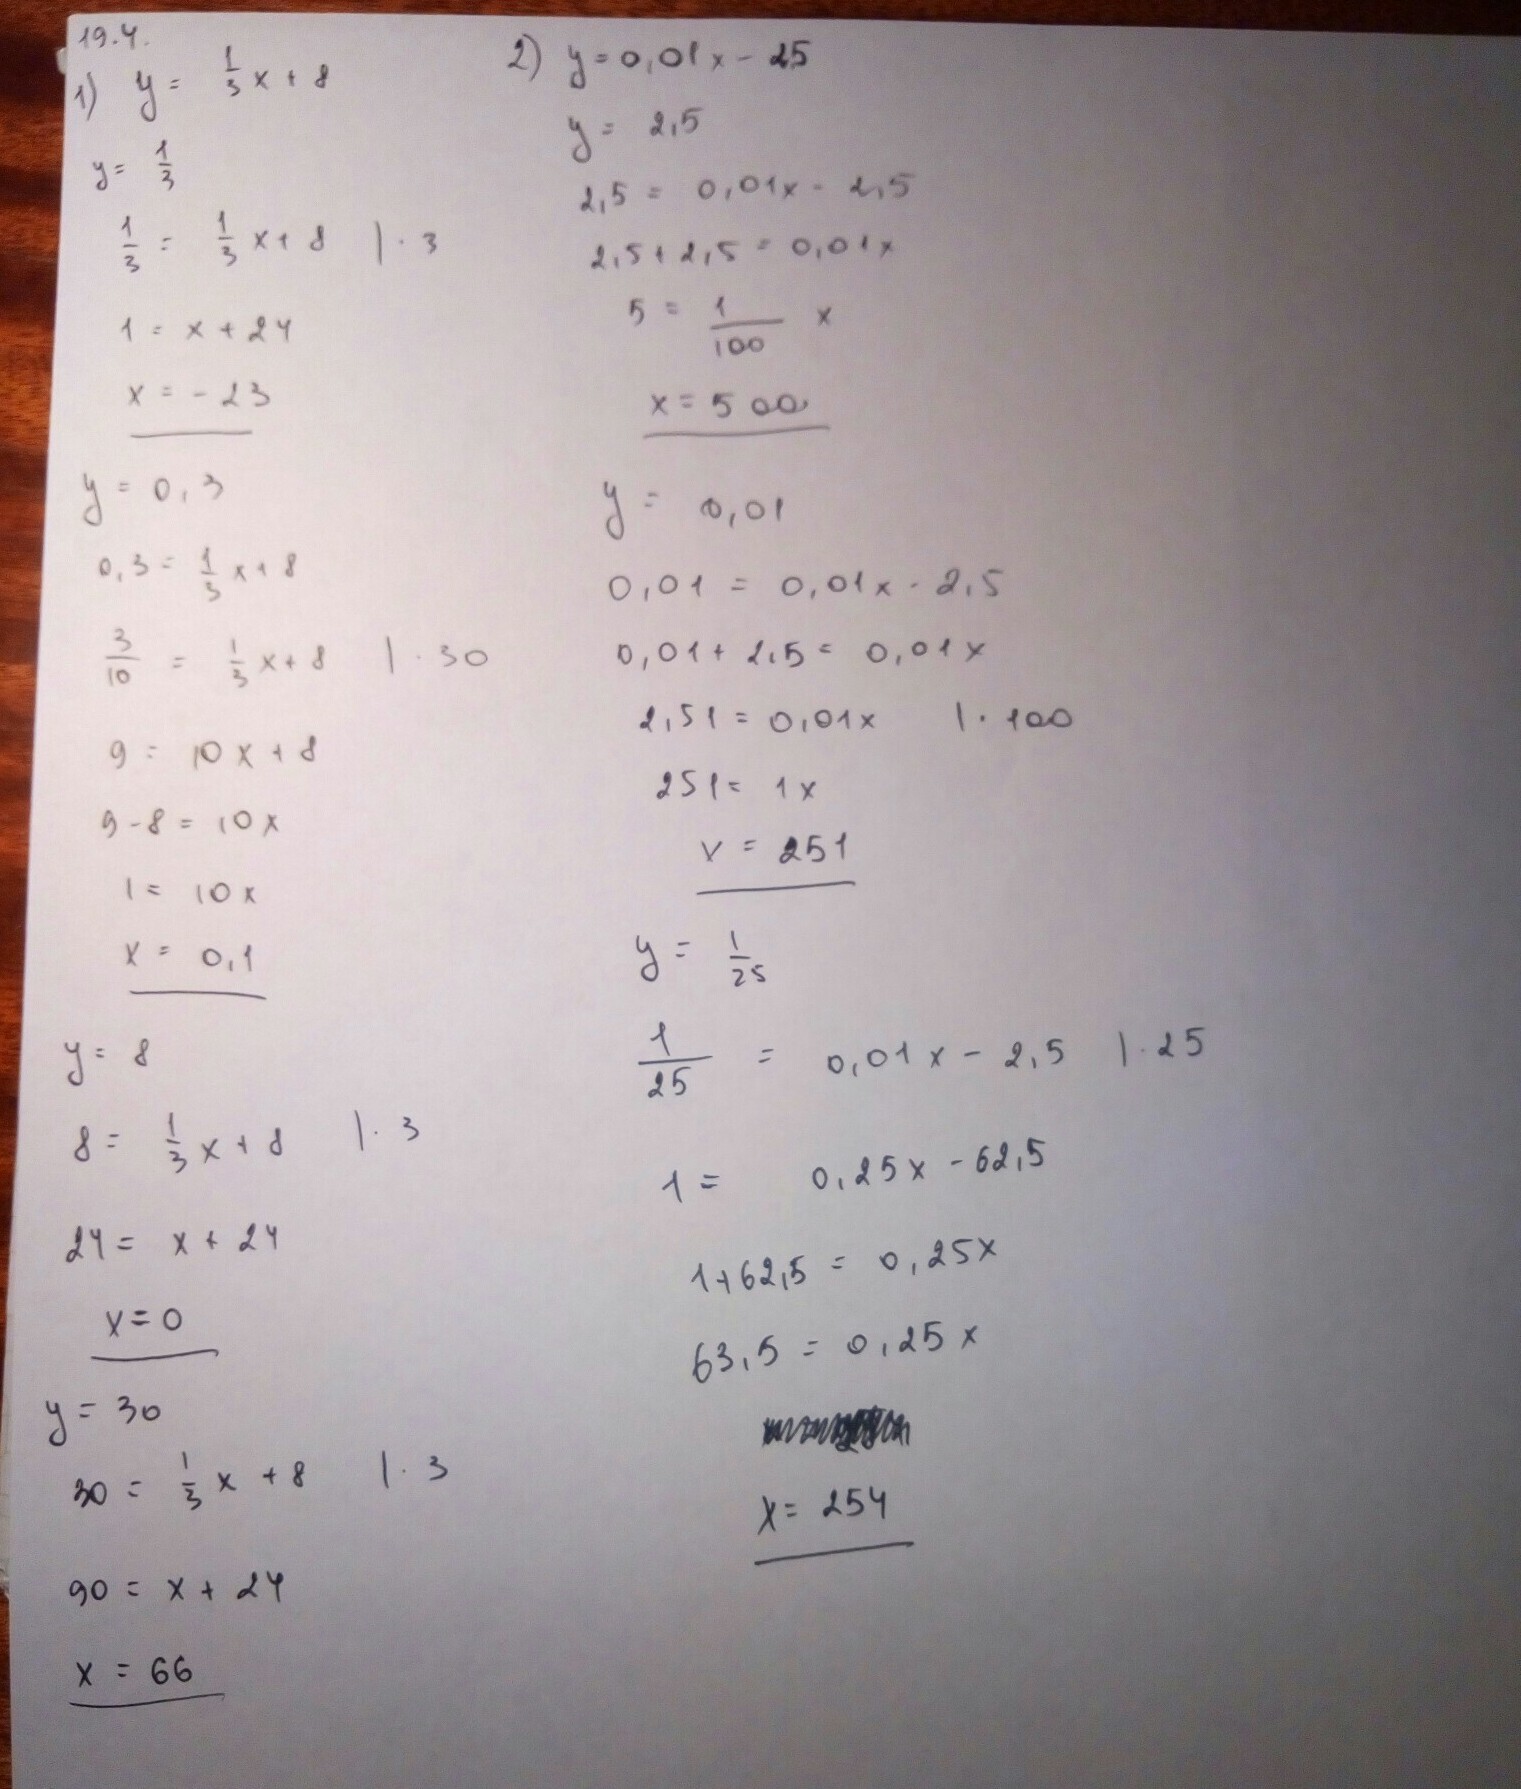 19.4.
1) y = 1/3 x + 8
y = 1/3
1/3 = 1/3 x + 8 | · 3
1 = x + 24
x = - 23
y = 0,3
0,3 = 1/3 x + 8
3/10 = 1/3 x + 8 | · 30
9 = 10x + 8
9 - 8 = 10x
1 = 10x
x = 0,1
y = 8
8 = 1/3 x + 8 | · 3
24 = x + 24
x = 0
y = 30
30 = 1/3 x + 8 | · 3
90 = x + 24
x = 66
2) y = 0,01x - 25
y = 2,5
2,5 = 0,01x - 2,5
2,5 + 2,5 = 0,01x
5 = 1/100 x
x = 500
y = 0,01
0,01 = 0,01x - 2,5
0,01 + 2,5 = 0,01x
2,51 = 0,01x | · 100
251 = 1x
x = 251
y = 1/25
1/25 = 0,01x - 2,5 | · 25
1 = 0,25x - 62,5
1 + 62,5 = 0,25x
63,5 = 0,25x
x = 254